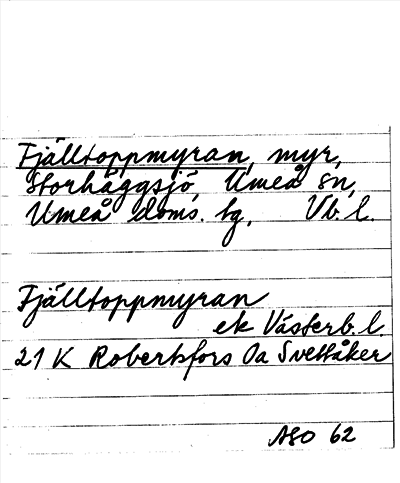 Fjälltoppmyran, myr,
Storhäggsjö, Umeå sn,
Umeå doms. tg, Vb. l.
Fjälltoppmyran
ek Västerb. l.
21 K Robertsfors 0a Svettåker
ASO 62